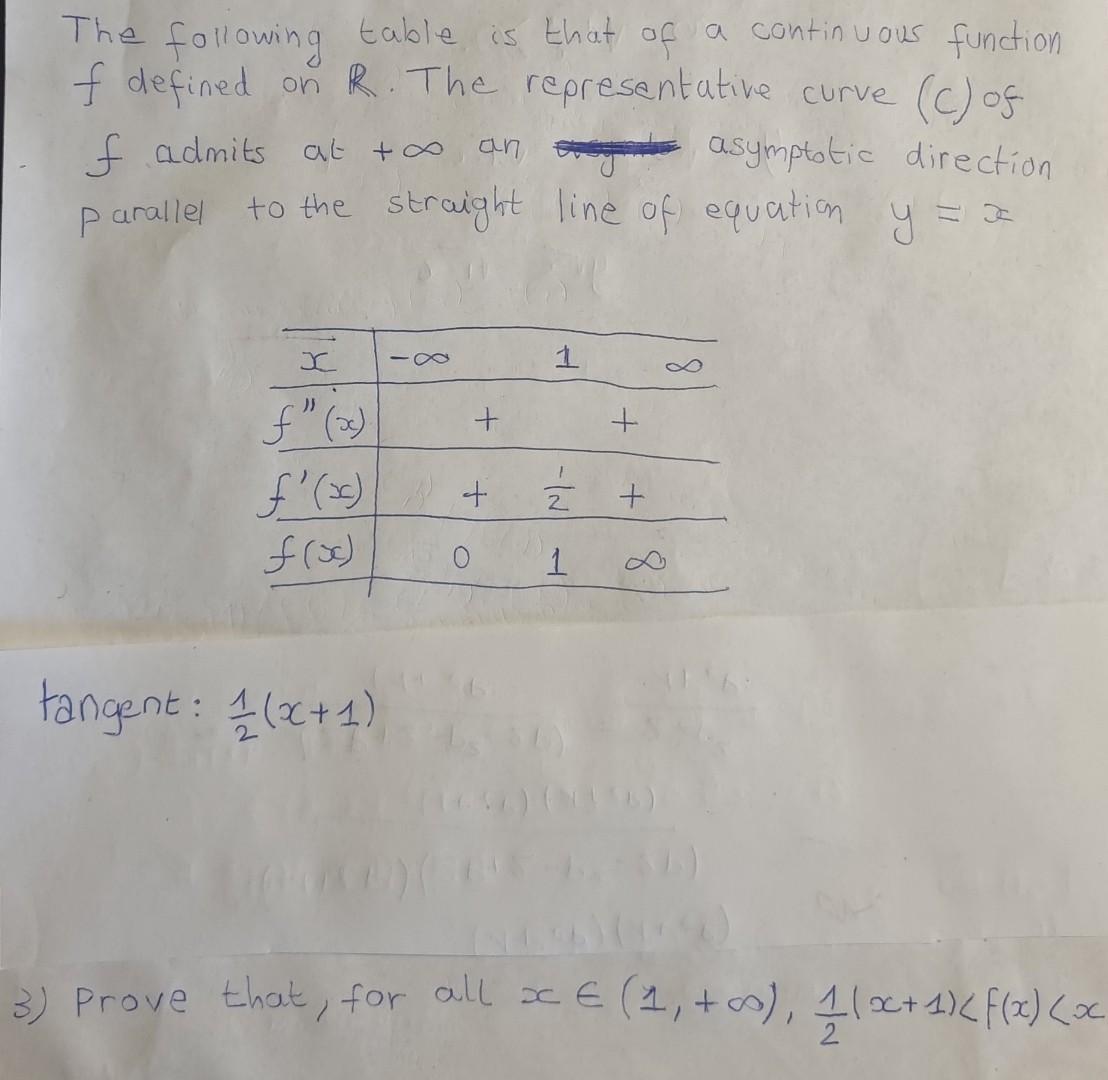 The following table is that of a continuous function
f defined on ℝ. The representative curve (C) of
f admits at +∞ an asymptotic direction
parallel to the straight line of equation y = x
x -∞ 1 ∞
f"(x) + +
f'(x) + 1/2 +
f(x) 0 1 ∞
tangent: 1/2(x+1)
3) Prove that, for all x ∈ (1,+∞), 1/2(x+1)<f(x)<x